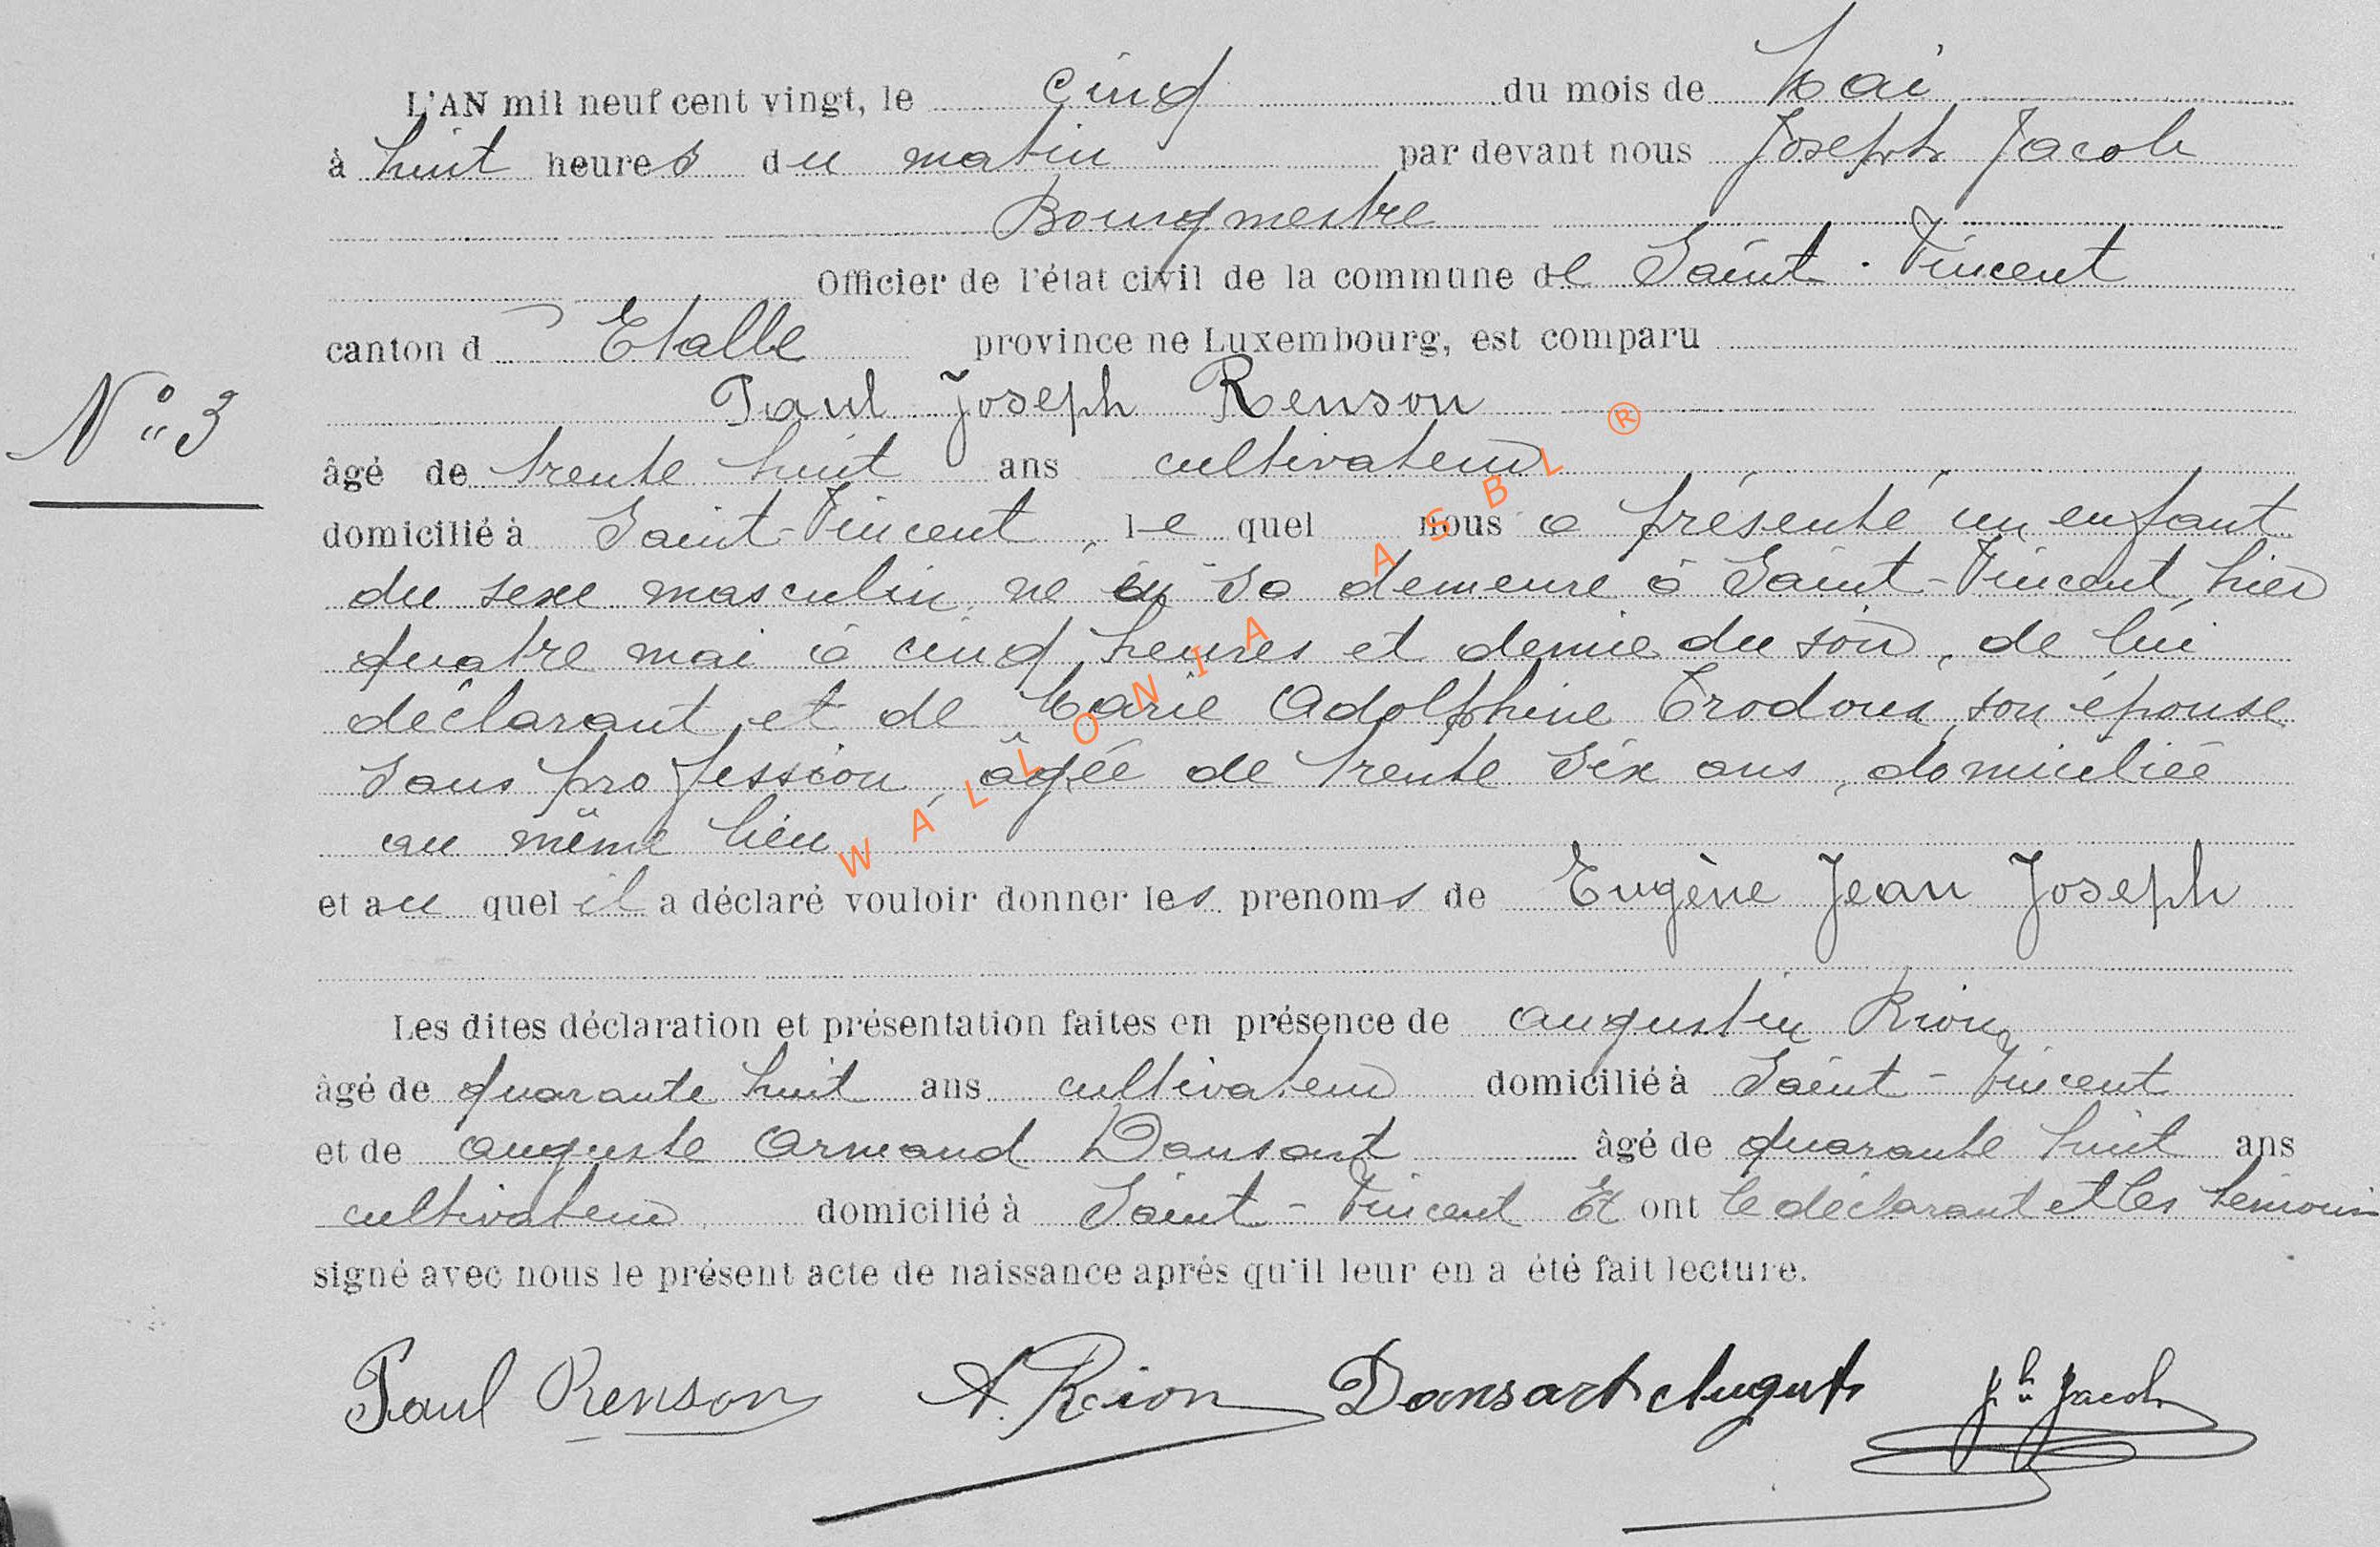 L'AN mil neuf cent vingt, le cinq du mois de Mai
à huit heures du matin par devant nous Joseph Jacob
Bourgmestre
Officier de l'état civil de la commune de Saint-Vincent
canton d'Etalle province ne Luxembourg, est comparu
Paul Joseph Renson
N° 3
âgé de trente huit ans cultivateur
domicilié à Saint-Vincent, le quel nous a présenté un enfant
du sexe masculin, né en sa demeure à Saint-Vincent, hier
quatre mai à cinq heures et demie du soir, de lui
déclarant et de Marie Adolphine son épouse
sans profession, âgée de trente six ans, domiciliée
au même lieu
et au quel il a déclaré vouloir donner les prenoms de Eugène Jean Joseph
Les dites déclaration et présentation faites en présence de Augustin Rion
âgé de quarante huit ans cultivateur domicilié à Saint-Vincent
et de Auguste Armand Dansart âgé de quarante huit ans
cultivateur domicilié à Saint-Vincent Et ont le déclarant et les témoins
signé avec nous le présent acte de naissance après qu'il leur en a été fait lecture.
Paul Renson A. Rion Dansart Auguste Jh Jacob
WALLONIA ASBL ®